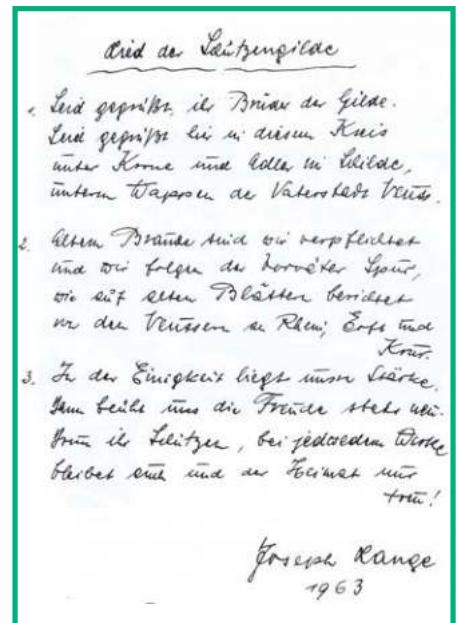 Lied der Schützengilde
1. Seid gegrüßt, ihr Brüder der Gilde.
Seid gegrüßt hier in diesem Kreis
unter Krone und Adler im Schilde,
unterm Wappen der Vaterstadt Neuss.
2. Altem Brauche sind wir verpflichtet
und wir folgen der Vorväter Spur,
wie auf alten Blättern berichtet
von den Neussern an Rhein, Erft und
Krur.
3. In der Einigkeit liegt unsre Stärke.
Dann blüht uns die Freude stets neu.
Drum ihr Schützen, bei jedwedem Werke
bleibet euch und der Heimat nur
treu!
Joseph Lange
1963